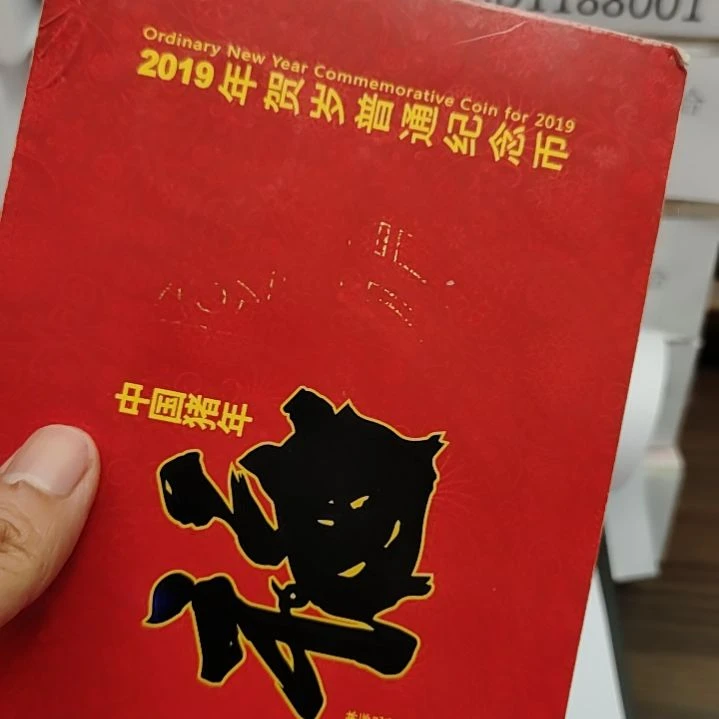 Ordinary New Year Commemorative Coin for 2019
2019年贺岁普通纪念币
中国猪年
福